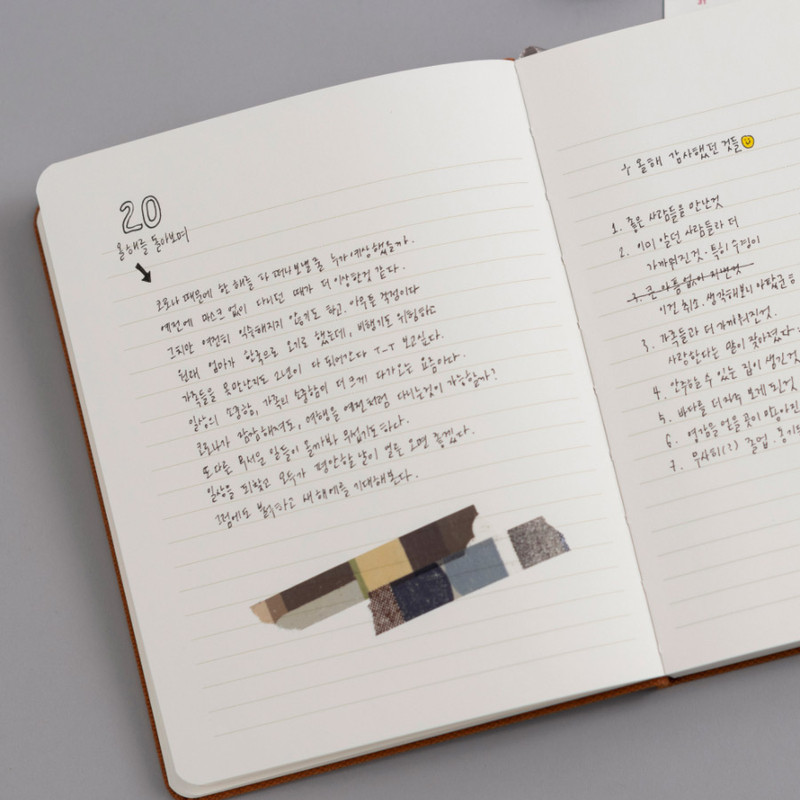 20
올해를 돌아보며
코로나 때문에 한 해를 다 떠나보낼 줄 누가 예상했을까.
예전에 마스크 없이 다니던 때가 더 이상한것 같다.
그치만 여전히 익숙해지지 않기도 하고. 아이들 걱정이다
원래 엄마가 한국으로 오기로 했는데, 비행기도 위험하고
가족들을 못만난지도 2년이 다 되어간다 T_T 보고싶다.
일상의 소중함, 가족의 소중함이 더 크게 다가오는 요즘이다.
코로나가 잠잠해져도, 여행을 예전처럼 다니는것이 가능할까?
또 다른 무서운 일들이 올까봐 무섭기도 하다.
일상을 되찾고 모두가 평안한 날이 얼른 오면 좋겠다.
그럼에도 하고 새해에를 기대해본다.
올해 감사했던 것들
1. 좋은 사람들을 만난것
2. 이미 알던 사람들과 더
가까워진것. 특히 수정이
3. 큰 아픔없이 지낸것
이건 취소. 생각해보니 아팠군
3. 가족들과 더 가까워진것.
사랑한다는 말이 잦아졌다
4. 안주할수 있는 집이 생긴것
5. 바다를 더 자주 보게된것
6. 영감을 얻을 곳이
7. 무사히(?) 졸업.